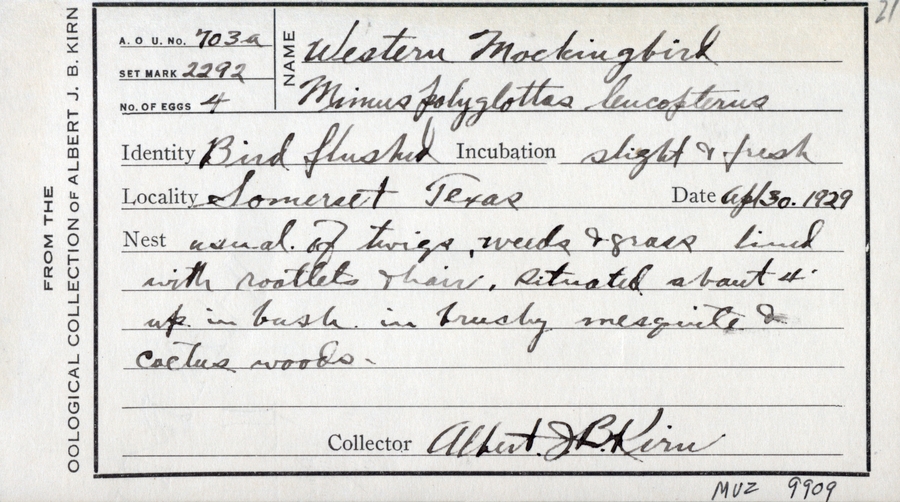 21
FROM THE
OOLOGICAL COLLECTION OF ALBERT J. B. KIRN
A. O. U. No. 703a
SET MARK 2292
No. OF EGGS 4
NAME Western Mockingbird
Mimus polyglottos leucopterus
Identity Bird flushed Incubation slight & fresh
Locality Somerset Texas Date Apl 30. 1929
Nest usual. Of twigs, weeds & grass lined
with rootlets & hair, situated about 4'
up in bush in brushy mesquite &
cactus woods-
Collector Albert J. B. Kirn
MVZ 9909